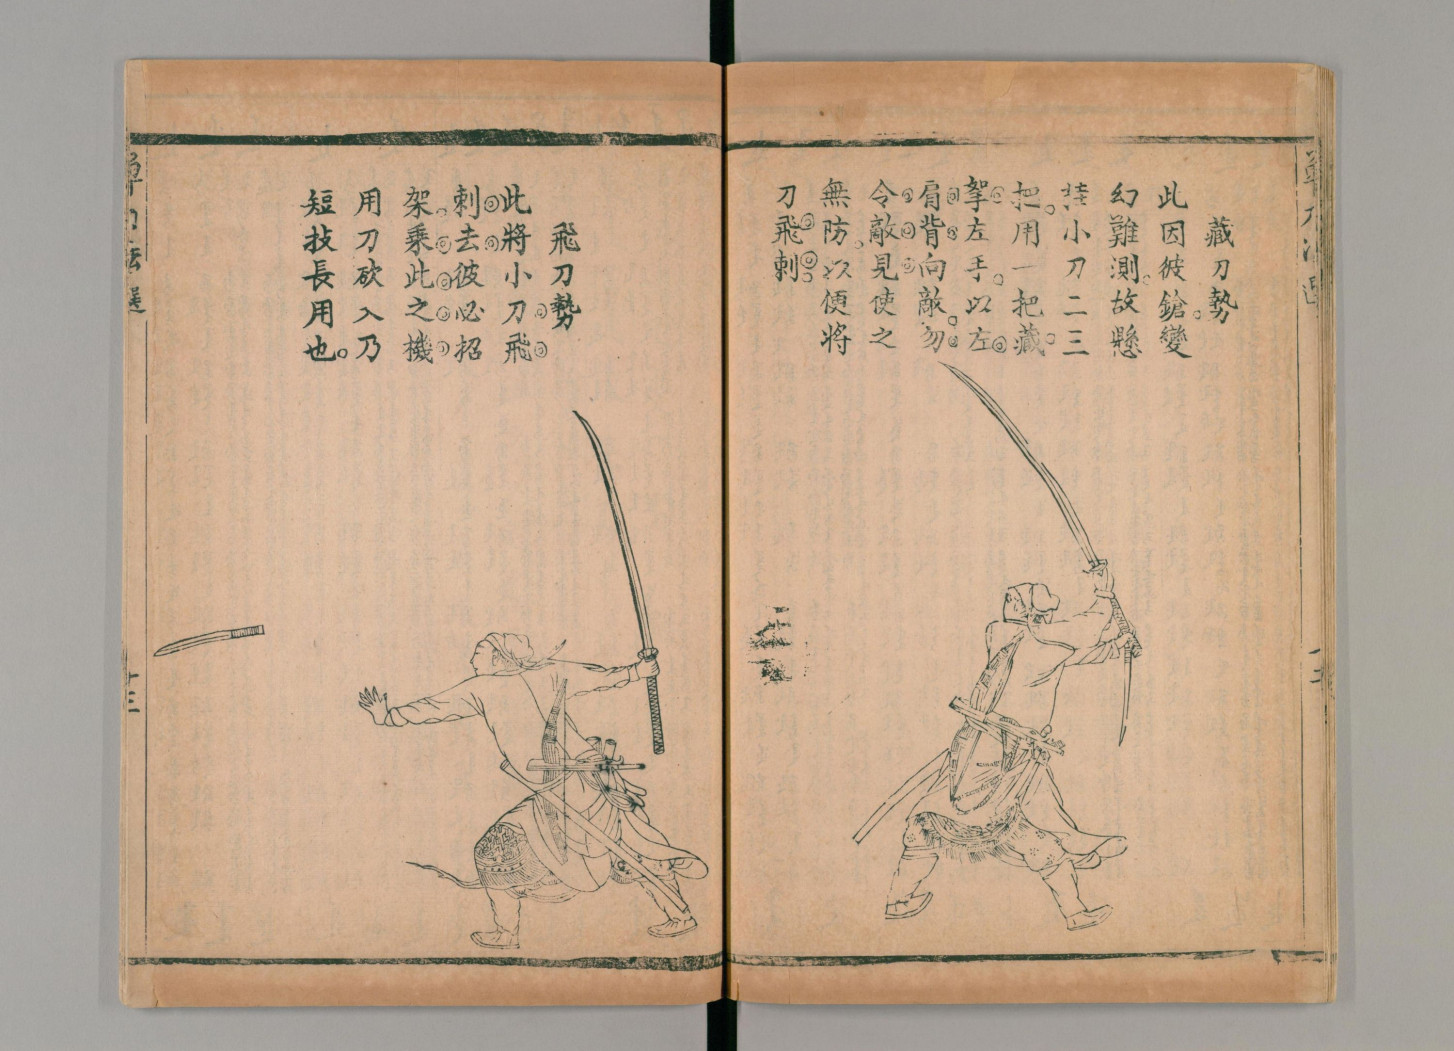 藏刀勢
此因彼鎗變
幻難測故懸
挂小刀二三
把用一把藏
拏左手以左
肩背向敵勿
令敵見使之
無防以便將
刀飛刺
飛刀勢
此將小刀飛
刺去彼必招
架乘此之機
用刀砍入乃
短技長用也
單刀法選
十三